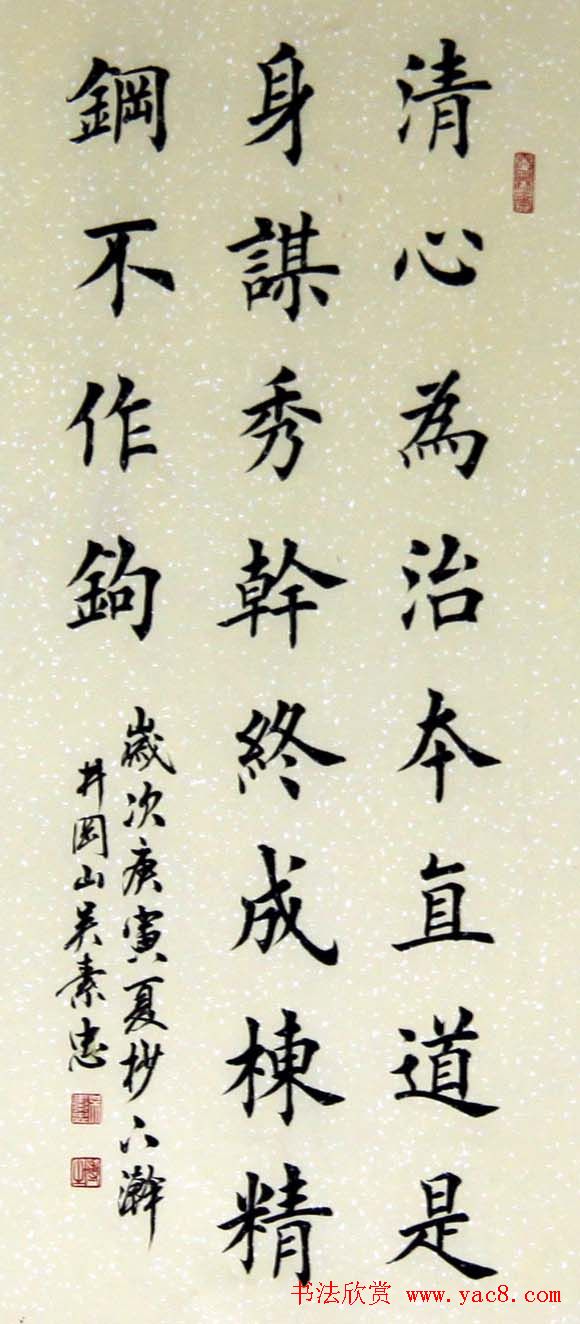 清心為治本直道是
身謀秀幹終成棟精
鋼不作鉤
歲次庚寅夏杪下澣
井岡山吳素忠
书法欣赏 www.yac8.com